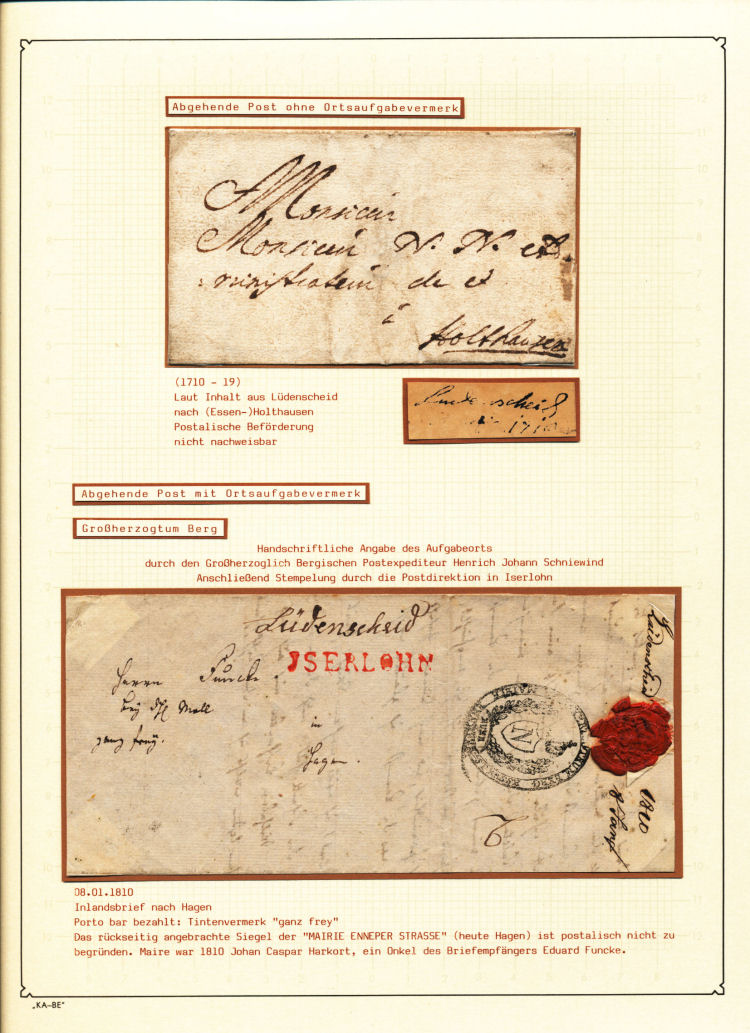 Abgehende Post ohne Ortsaufgabevermerk
Monsieur
Monsieur N. N. et
de et
à
Holthausen
(1710 - 19)
Laut Inhalt aus Lüdenscheid
nach (Essen-)Holthausen
Postalische Beförderung
nicht nachweisbar
Ludenscheid
1710
Abgehende Post mit Ortsaufgabevermerk
Großherzogtum Berg
Handschriftliche Angabe des Aufgabeorts
durch den Großherzoglich Bergischen Postexpediteur Henrich Johann Schniewind
Anschließend Stempelung durch die Postdirektion in Iserlohn
Lüdenscheid
JSERLOHN
Herrn Funcke
bey Moll
in
ganz frey.
Hagen.
N
2
Lüdenscheid
1810
8 Janr
08.01.1810
Inlandsbrief nach Hagen
Porto bar bezahlt: Tintenvermerk "ganz frey"
Das rückseitig angebrachte Siegel der "MAIRIE ENNEPER STRASSE" (heute Hagen) ist postalisch nicht zu
begründen. Maire war 1810 Johan Caspar Harkort, ein Onkel des Briefempfängers Eduard Funcke.
„KA-BE"